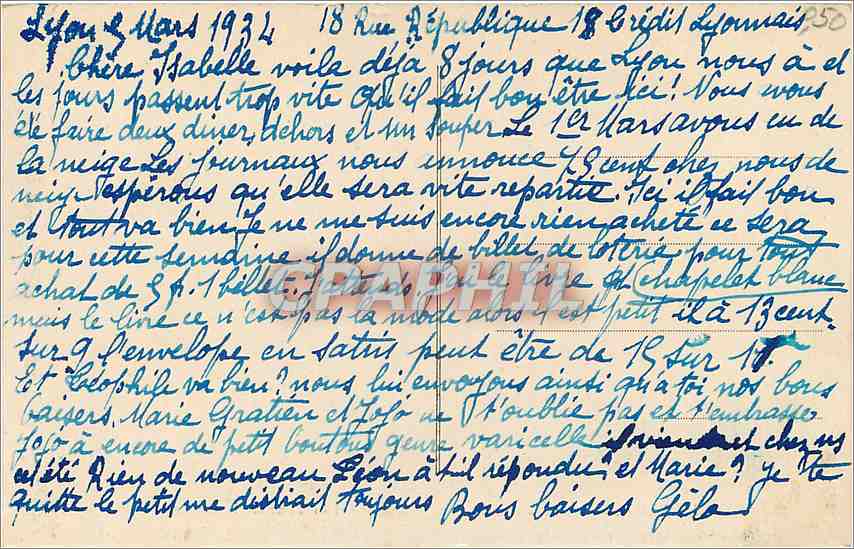 Lyon 2 Mars 1934 18 Rue République 18 Crédit Lyonnais 950
Chère Isabelle voila déjà 8 jours que Lyon nous à et
les jours passent trop vite qu'il fait bon être ici! Nous avous
été faire deux diner dehors et un souper Le 1er Mars avous eu de
la neige Les journaux nous annonce cent chez nous de
neige espérons qu'elle sera vite repartie. Ici il fait bon
et tout va bien Je ne me suis encore rien acheté ce sera
pour cette semaine il donne de billet de loterie pour tout
achat de 5f. 1 billet. J'attends le livre et chapelet blanc
mais le livre ce n'est pas la mode alors est petit il à 13 cent.
Sur 9 l'envelope en satin peut être de 15 sur 11
Et Théophile va bien? nous lui envoyons ainsi qu'a toi nos bons
baisers. Marie Gratien et Jojo ne t'oublie pas et t'embrasse
Jojo à encore de petit boutons genre varicelle il viendront chez ns
cet été Rien de nouveau Léon à t-il répondu? et Marie? je te
quitte le petit me distrait toujours Bons baisers Géla
CPAPHIL